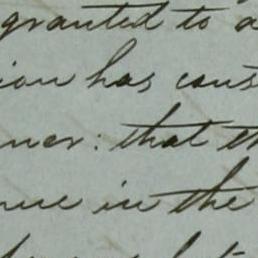 granted to a
ion has caus
ner: that th
nce in the